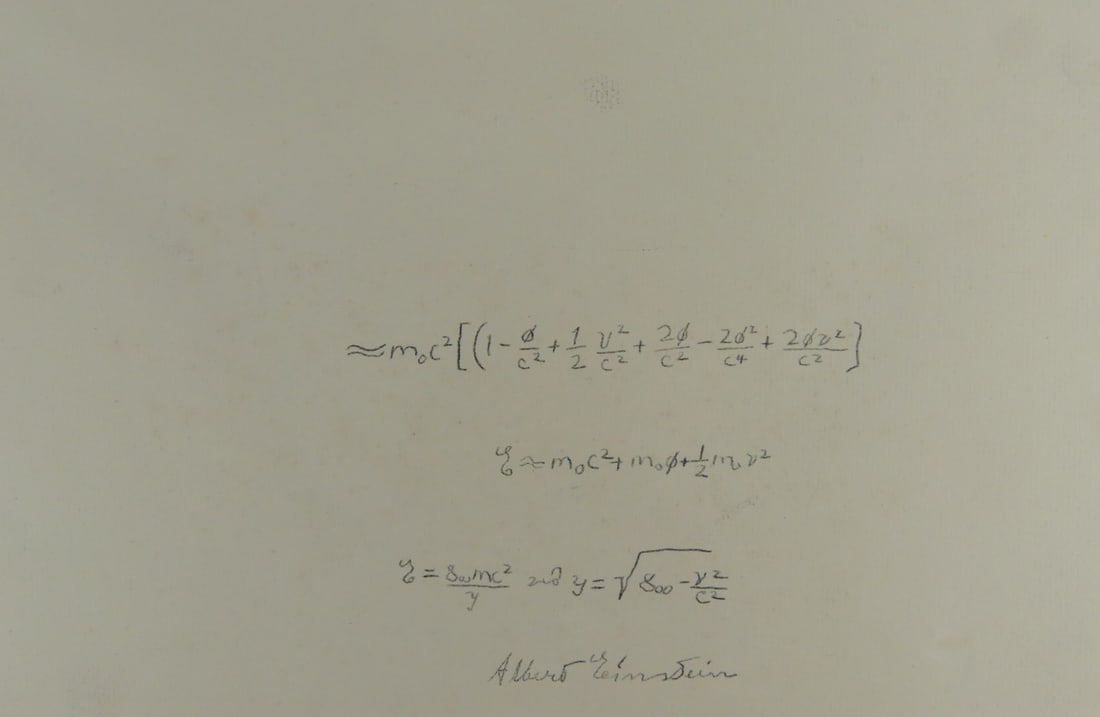 ≈ m₀c² [(1 - ϕ/c² + 1/2 v²/c² + 2ϕ/c² - 2ϕ²/c⁴ + 2ϕv²/c²]
ℰ ≈ m₀c² + m₀ϕ + 1/2 m₀v²
ℰ = g₀₀mc²/y and y = √(g₀₀ - v²/c²)
Albert Einstein